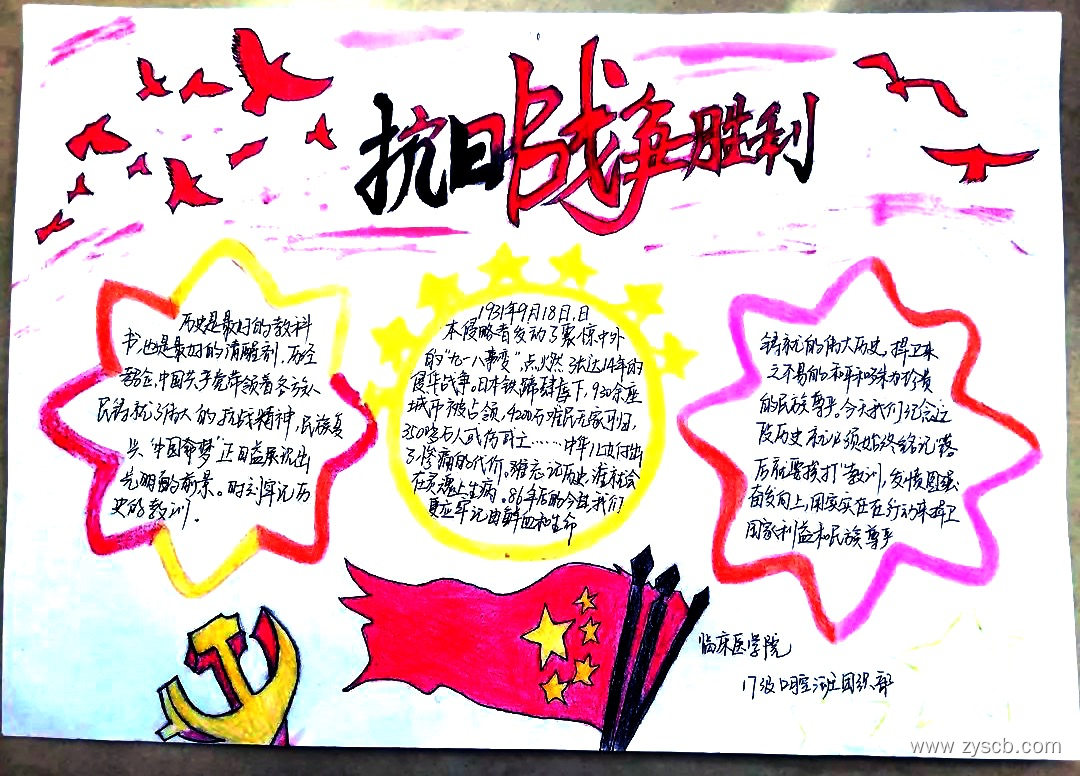 抗日战争胜利
历史是最好的教科
书,也是最好的清醒剂,历经
磨砺,中国共产党带领着各族人
民铸就了伟大的抗战精神,民族复
兴“中国命梦”正日益展现出
光明的前景。时刻牢记历
史的教训。
1931年9月18日,日
本侵略者发动了震惊中外
的“九一八事变”点燃了长达14年的
侵华战争。日本铁蹄肆虐下,930余座
城市被占领,4200万难民无家可归,
3500多万人死伤
了惨痛的代价。难忘记历史,难社会
在灵魂上生病。86年后的今年,我们
更应牢记由鲜血和生命
铸就的伟大历史,捍卫来
之不易的和平和殊为珍贵
的民族尊严。今天我们纪念这
段历史,就必须始终铭记“落
后就要挨打”教训,发愤图强
奋发向上,用实实在在行动来捍卫
国家利益和民族尊严
临床医学院
17级口腔班团组织部
www.zyscb.com